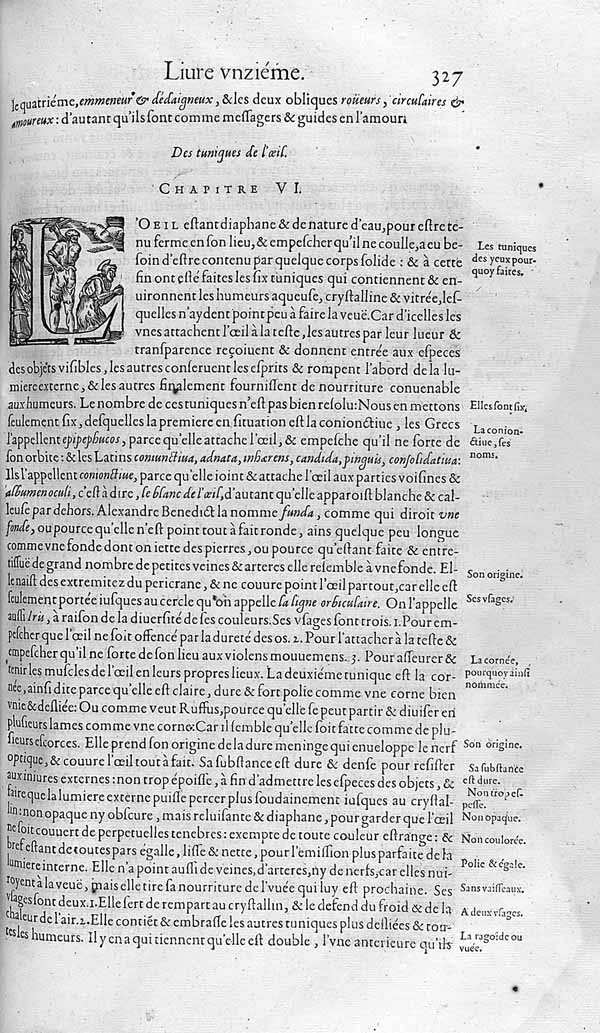 Liure vnziéme. 327
le quatriéme, emmeneur & dédaigneux, & les deux obliques roüeurs, circulaires &
amoureux: d'autant qu'ils sont comme messagers & guides en l'amour.
Des tuniques de l'œil.
CHAPITRE VI.
L'OEIL estant diaphane & de nature d'eau, pour estre te-
nu ferme en son lieu, & empescher qu'il ne coulle, a eu be-
soin d'estre contenu par quelque corps solide : & à cette
fin ont esté faites les six tuniques qui contiennent & en-
uironnent les humeurs aqueuse, crystalline & vitrée, les-
quelles n'aydent point peu à faire la veuë. Car d'icelles les
vnes attachent l'œil à la teste, les autres par leur lueur &
transparence reçoiuent & donnent entrée aux especes
des objets visibles, les autres conseruent les esprits & rompent l'abord de la lu-
miere externe, & les autres finalement fournissent de nourriture conuenable
aux humeurs. Le nombre de ces tuniques n'est pas bien resolu: Nous en mettons
seulement six, desquelles la premiere en situation est la conionctiue, les Grecs
l'appellent epipephucos, parce qu'elle attache l'œil, & empesche qu'il ne sorte de
son orbite: & les Latins coniunctiua, adnata, inhærens, candida, pinguis, consolidatiua:
Ils l'appellent conionctiue, parce qu'elle ioint & attache l'œil aux parties voisines &
albumen oculi, c'est à dire, le blanc de l'œil, d'autant qu'elle apparoist blanche & cal-
leuse par dehors. Alexandre Benedict la nomme funda, comme qui diroit vne
fonde, ou pource qu'elle n'est point tout à fait ronde, ains quelque peu longue
comme vne fonde dont on iette des pierres, ou pource qu'estant faite & entre-
tissuë de grand nombre de petites veines & arteres elle resemble à vne fonde. El-
le naist des extremitez du pericrane, & ne couure point l'œil par tout, car elle est
seulement portée iusques au cercle qu'on appelle la ligne orbiculaire. On l'appelle
aussi Iris, à raison de la diuersité de ses couleurs. Ses vsages sont trois. 1. Pour em-
pescher que l'œil ne soit offencé par la dureté des os. 2. Pour l'attacher à la teste &
empescher qu'il ne sorte de son lieu aux violens mouuemens. 3. Pour asseurer &
tenir les muscles de l'œil en leurs propres lieux. La deuxiéme tunique est la cor-
née, ainsi dite parce qu'elle est claire, dure & fort polie comme vne corne bien
vnie & desliée: Ou comme veut Ruffus, pource qu'elle se peut partir & diuiser en
plusieurs lames comme vne corne: Car il semble qu'elle soit faite comme de plu-
sieurs escorces. Elle prend son origine de la dure meninge qui enueloppe le nerf
optique, & couure l'œil tout à fait. Sa substance est dure & dense pour resister
aux iniures externes: non trop époisse, à fin d'admettre les especes des objets, &
faire que la lumiere externe puisse percer plus soudainement iusques au crystal-
lin: non opaque ny obscure, mais reluisante & diaphane, pour garder que l'œil
ne soit couuert de perpetuelles tenebres: exempte de toute couleur estrange: &
bref estant de toutes pars égalle, lisse & nette, pour l'emission plus parfaite de la
lumiere interne. Elle n'a point aussi de veines, d'arteres, ny de nerfs, car elles nui-
royent à la veuë, mais elle tire sa nourriture de l'vuée qui luy est prochaine. Ses
vsages sont deux. 1. Elle sert de rempart au crystallin, & le defend du froid & de la
chaleur de l'air. 2. Elle contiēt & embrasse les autres tuniques plus desliées & tou-
tes les humeurs. Il y en a qui tiennent qu'elle est double, l'vne anterieure qu'ils
Les tuniques
des yeux pour-
quoy faites.
Elles sont six.
La conion-
ctiue, ses
noms.
Son origine.
Ses vsages.
La cornée,
pourquoy ainsi
nommée.
Son origine.
Sa substance
est dure.
Non trop es-
pesse.
Non opaque.
Non coulorée.
Polie & égale.
Sans vaisseaux.
A deux vsages.
La ragoïde ou
vuée.